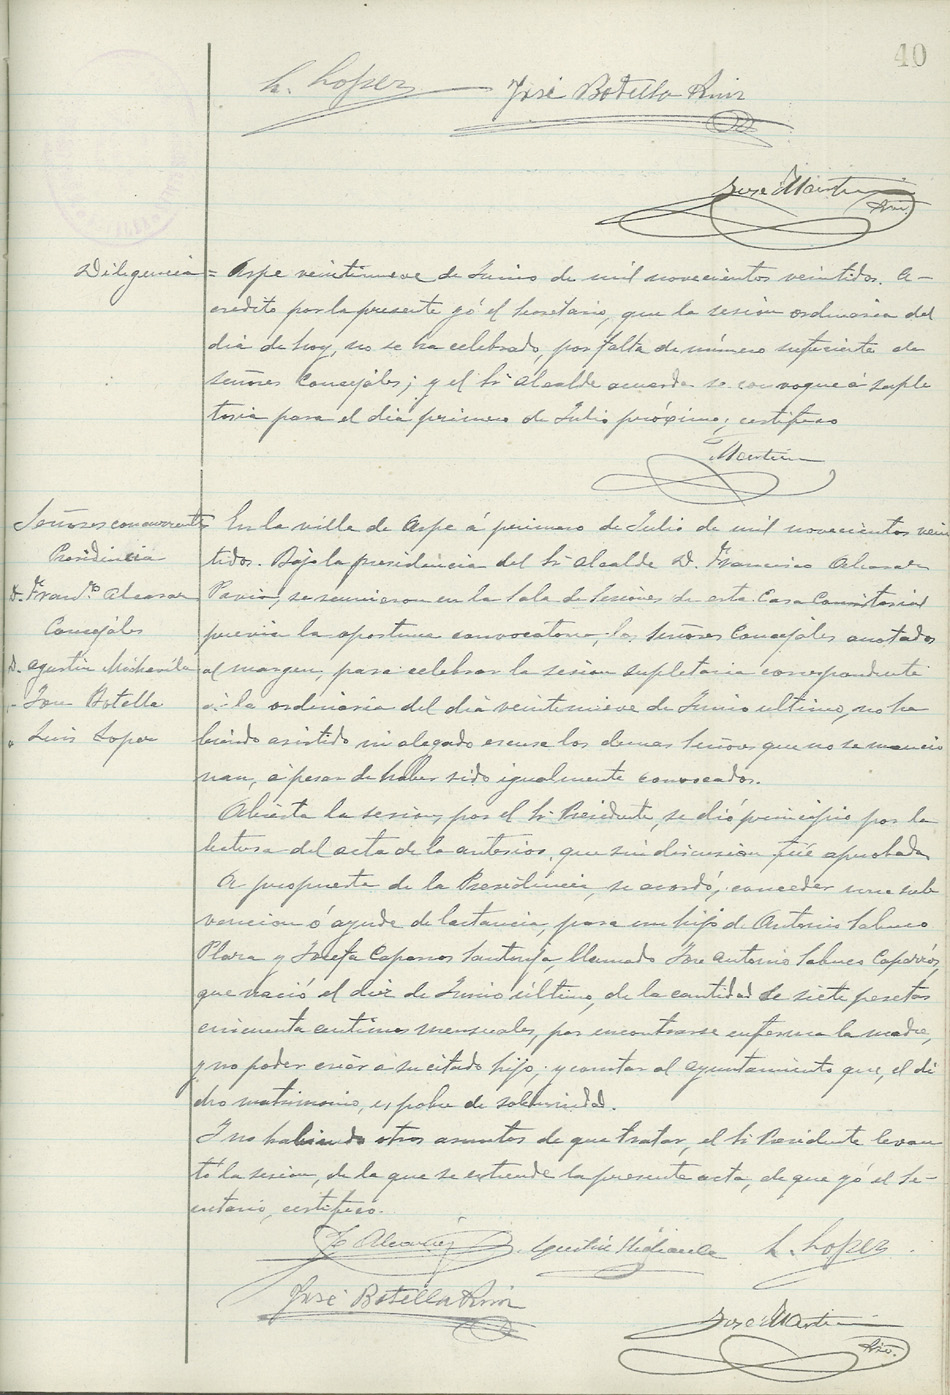 40
L. Lopez José Botella Ruiz
José Martin
Srio.
Diligencia = Aspe veintinueve de Junio de mil novecientos veintidos. A-
credito por la presente yó el Secretario, que la sesion ordinaria del
dia de hoy, no se ha celebrado, por falta de número suficiente de
señores Concejáles; y el Sr Alcalde acuerda se convoque á suple
toria para el dia primero de Julio próximo; certifico
Martin
Señores concurrentes
Presidencia
D. Franco. Alcaraz
Concejáles
D. Agustin
" Jose Botella
" Luis Lopez
En la villa de Aspe á primero de Julio de mil novecientos vein
tidos. Bajo la presidencia del Sr Alcalde D. Francisco Alcaraz
Pavia, se reunieron en la Sala de Sesiones de esta Casa Consistorial
previa la oportuna convocatoria, los Señores Concejáles anotados
al margen, para celebrar la sesion supletoria correspondiente
á la ordinaria del dia veintinueve de Junio ultimo, no ha
biendo asistido ni alegado escusa los demas Señores que no se mencio
nan, á pesar de haber sido igualmente convocados.
Abierta la sesion, por el Sr Presidente, se dió principio por la
lectura del acta de la anterior, que sin discusion fué aprobada
A propuesta de la Presidencia, se acordó, conceder una sub
vencion ó ayuda de lactancia, para un hijo de Antonio Sabuco
y Josefa Caparros Santonja, llamado Jose Antonio Sabuco Caparrós,
que nació el diez de Junio último, de la cantidad de siete pesetas
cincuenta centimos mensuales, por encontrarse enferma la madre,
y no poder criar á su citado hijo, y constar al Ayuntamiento que, el di
cho matrimonio, es pobre de solemnidad.
Y no habiendo otros asuntos de que tratar, el Sr Presidente levan
tó la sesion, de la que se estiende la presente acta, de que yó el Se-
cretario, certifico.
F. Alcaraz Agustin L. Lopez
José Botella Ruiz
José Martin
Srio.